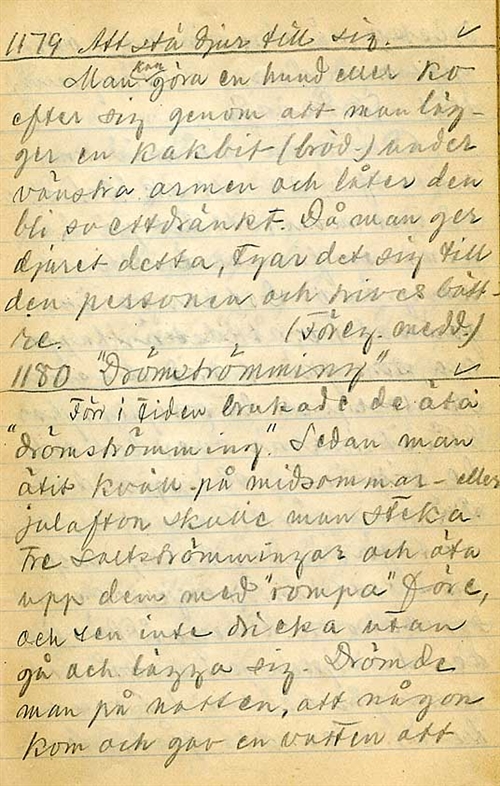 1179 Att stå djur till sig. ✓
Man kan göra en hund eller ko
efter sig genom att man läg-
ger en kakbit (bröd-) under
vänstra armen och låter den
bli svettdränkt. Då man ger
djuret detta, tyar det sig till
den personen och trives bätt-
re. (Föreg. medd.)
1180 "Drömströmming" ✓
Förr i tiden brukade de äta
"drömströmming". Sedan man
ätit kväll på midsommar- eller
julafton skulle man steka
tre saltströmmingar och äta
upp dem med "rompa" före,
och sen inte dricka utan
gå och lägga sig. Drömde
man på natten, att någon
kom och gav en vatten att